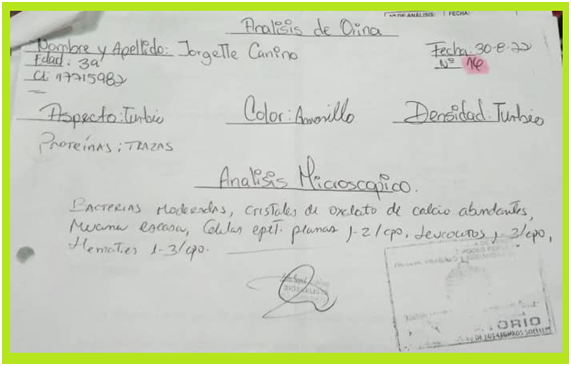 Nº DE ANÁLISIS: FECHA:
Analisis de Orina
Nombre y Apellido: Jorgette Canino
Fecha: 30-8-22
Edad: 39
Nº 16
CI 17715982
Aspecto: Turbio Color: Amarillo Densidad: Turbio
Proteínas: TRAZAS
Analisis Microscopico.
BACTERIAS Moderadas, cristales de oxalato de calcio abundantes,
Mucina escasa, Celulas epit. planas 1-2/cpo, Leucocitos 1-3/cpo,
Hematies 1-3/cpo.